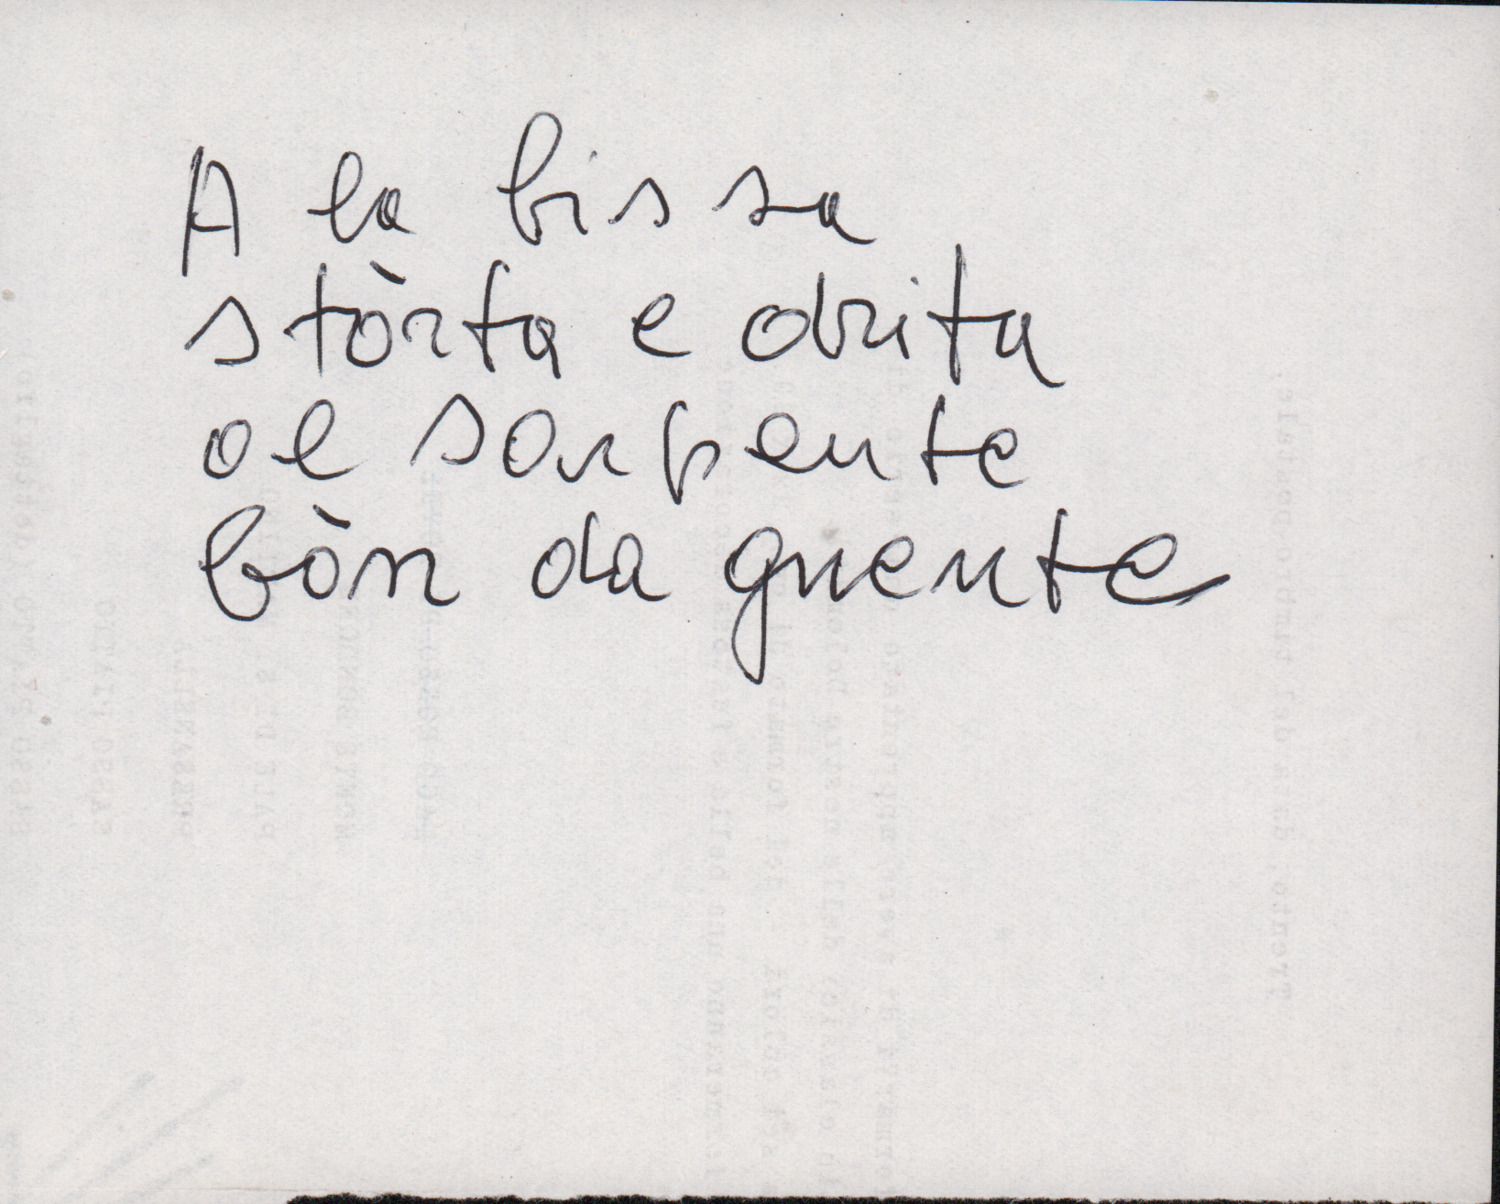 A la bissa
stòrta e drita
el serpente
bòn da gnente